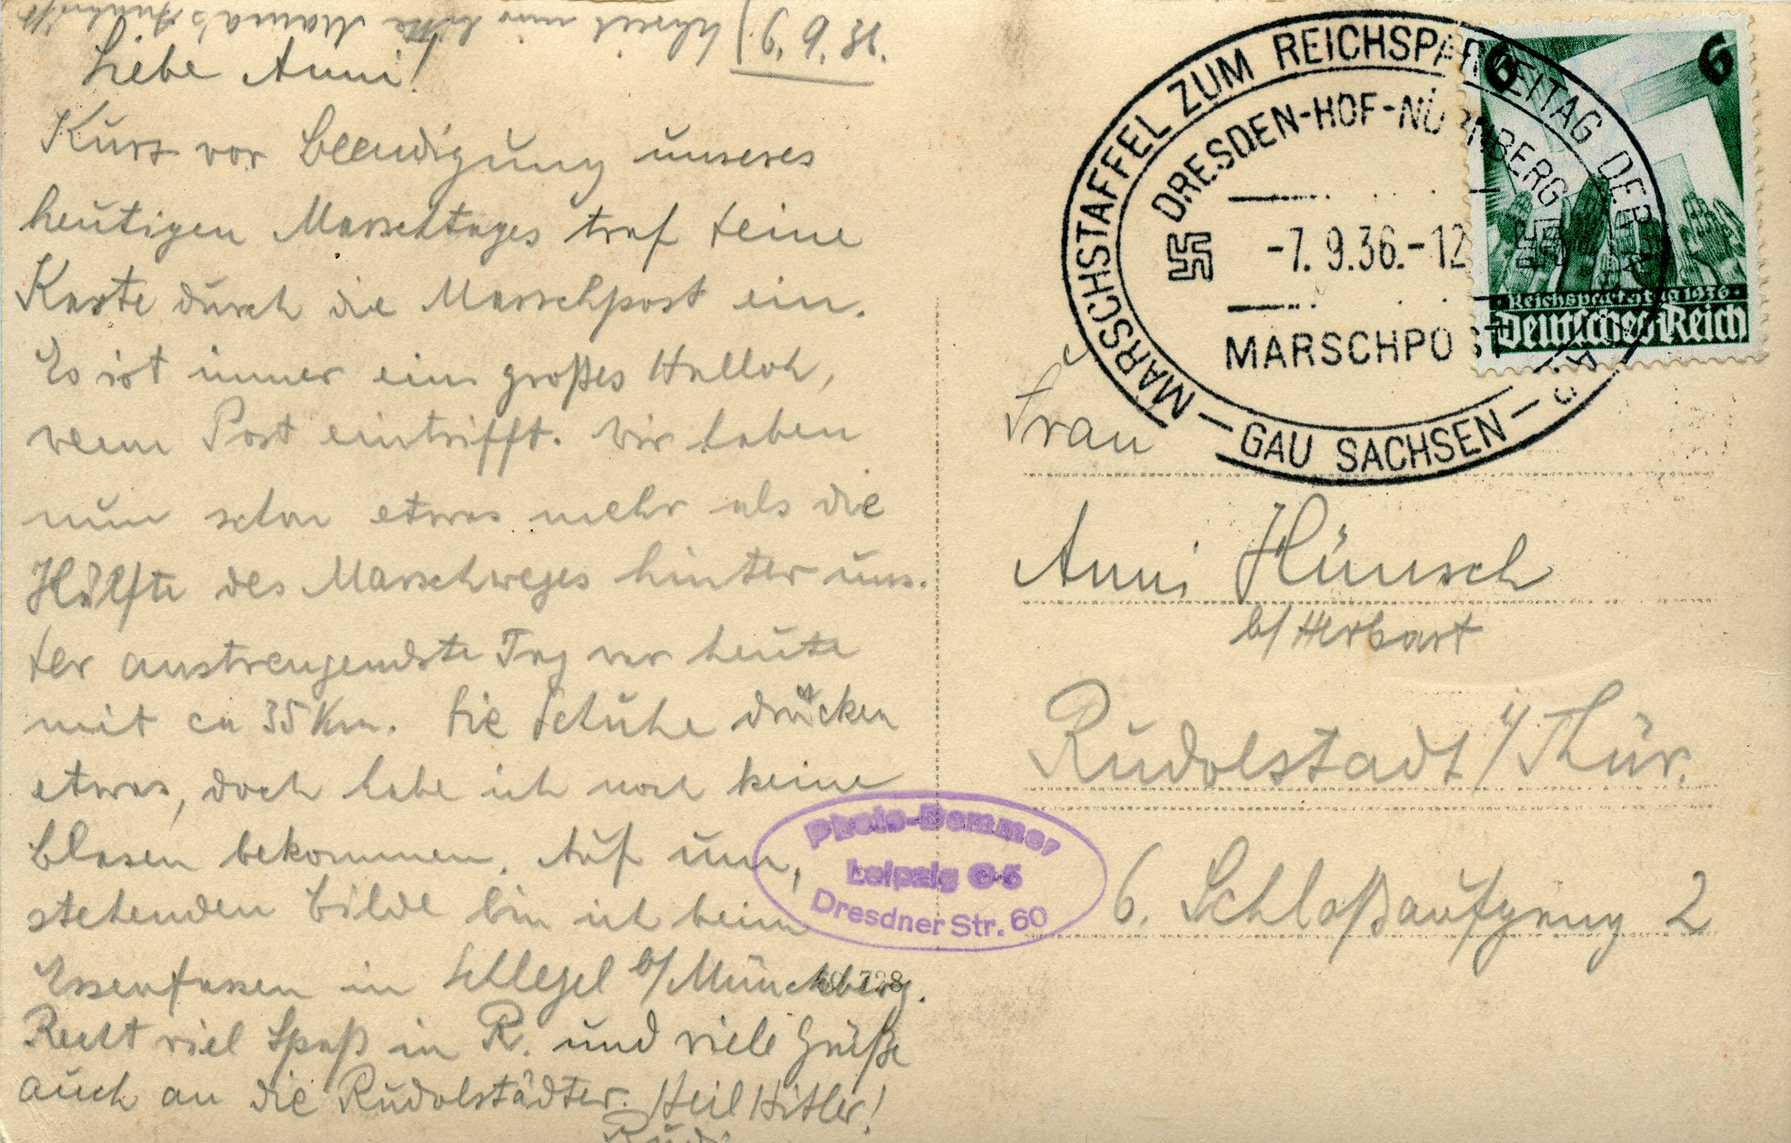 9.9.36.
Schreib mir bitte Mama's Ankunft
Liebe Anni!
Kurz vor Beendigung unseres
heutigen Marschtages traf Deine
Karte durch die Marschpost ein.
Es ist immer ein großes Halloh,
wenn Post eintrifft. Wir haben
nun schon etwas mehr als die
Hälfte des Marschweges hinter uns.
Der anstrengendste Tag war heute
mit ca 35 Km. Die Schuhe drücken
etwas, doch habe ich noch keine
Blasen bekommen. Auf um,
stehenden Bilde bin ich beim
Essenfassen in Schlegel b/Münchberg.
Recht viel Spaß in R. und viele Grüße
auch an die Rudolstädter. Heil Hitler!
Rudi
MARSCHSTAFFEL ZUM REICHSPARTEITAG DER
DRESDEN-HOF-NÜRNBERG
-7.9.36.-12
MARSCHPOST
- GAU SACHSEN -
6 6
Reichsparteitag 1936
Deutsches Reich
Frau
Anni Hünsch
b/ Herbart
Rudolstadt i/Thür.
6. Schloßaufgang 2
Photo-Bemmer
Leipzig O-5
Dresdner Str. 60
728